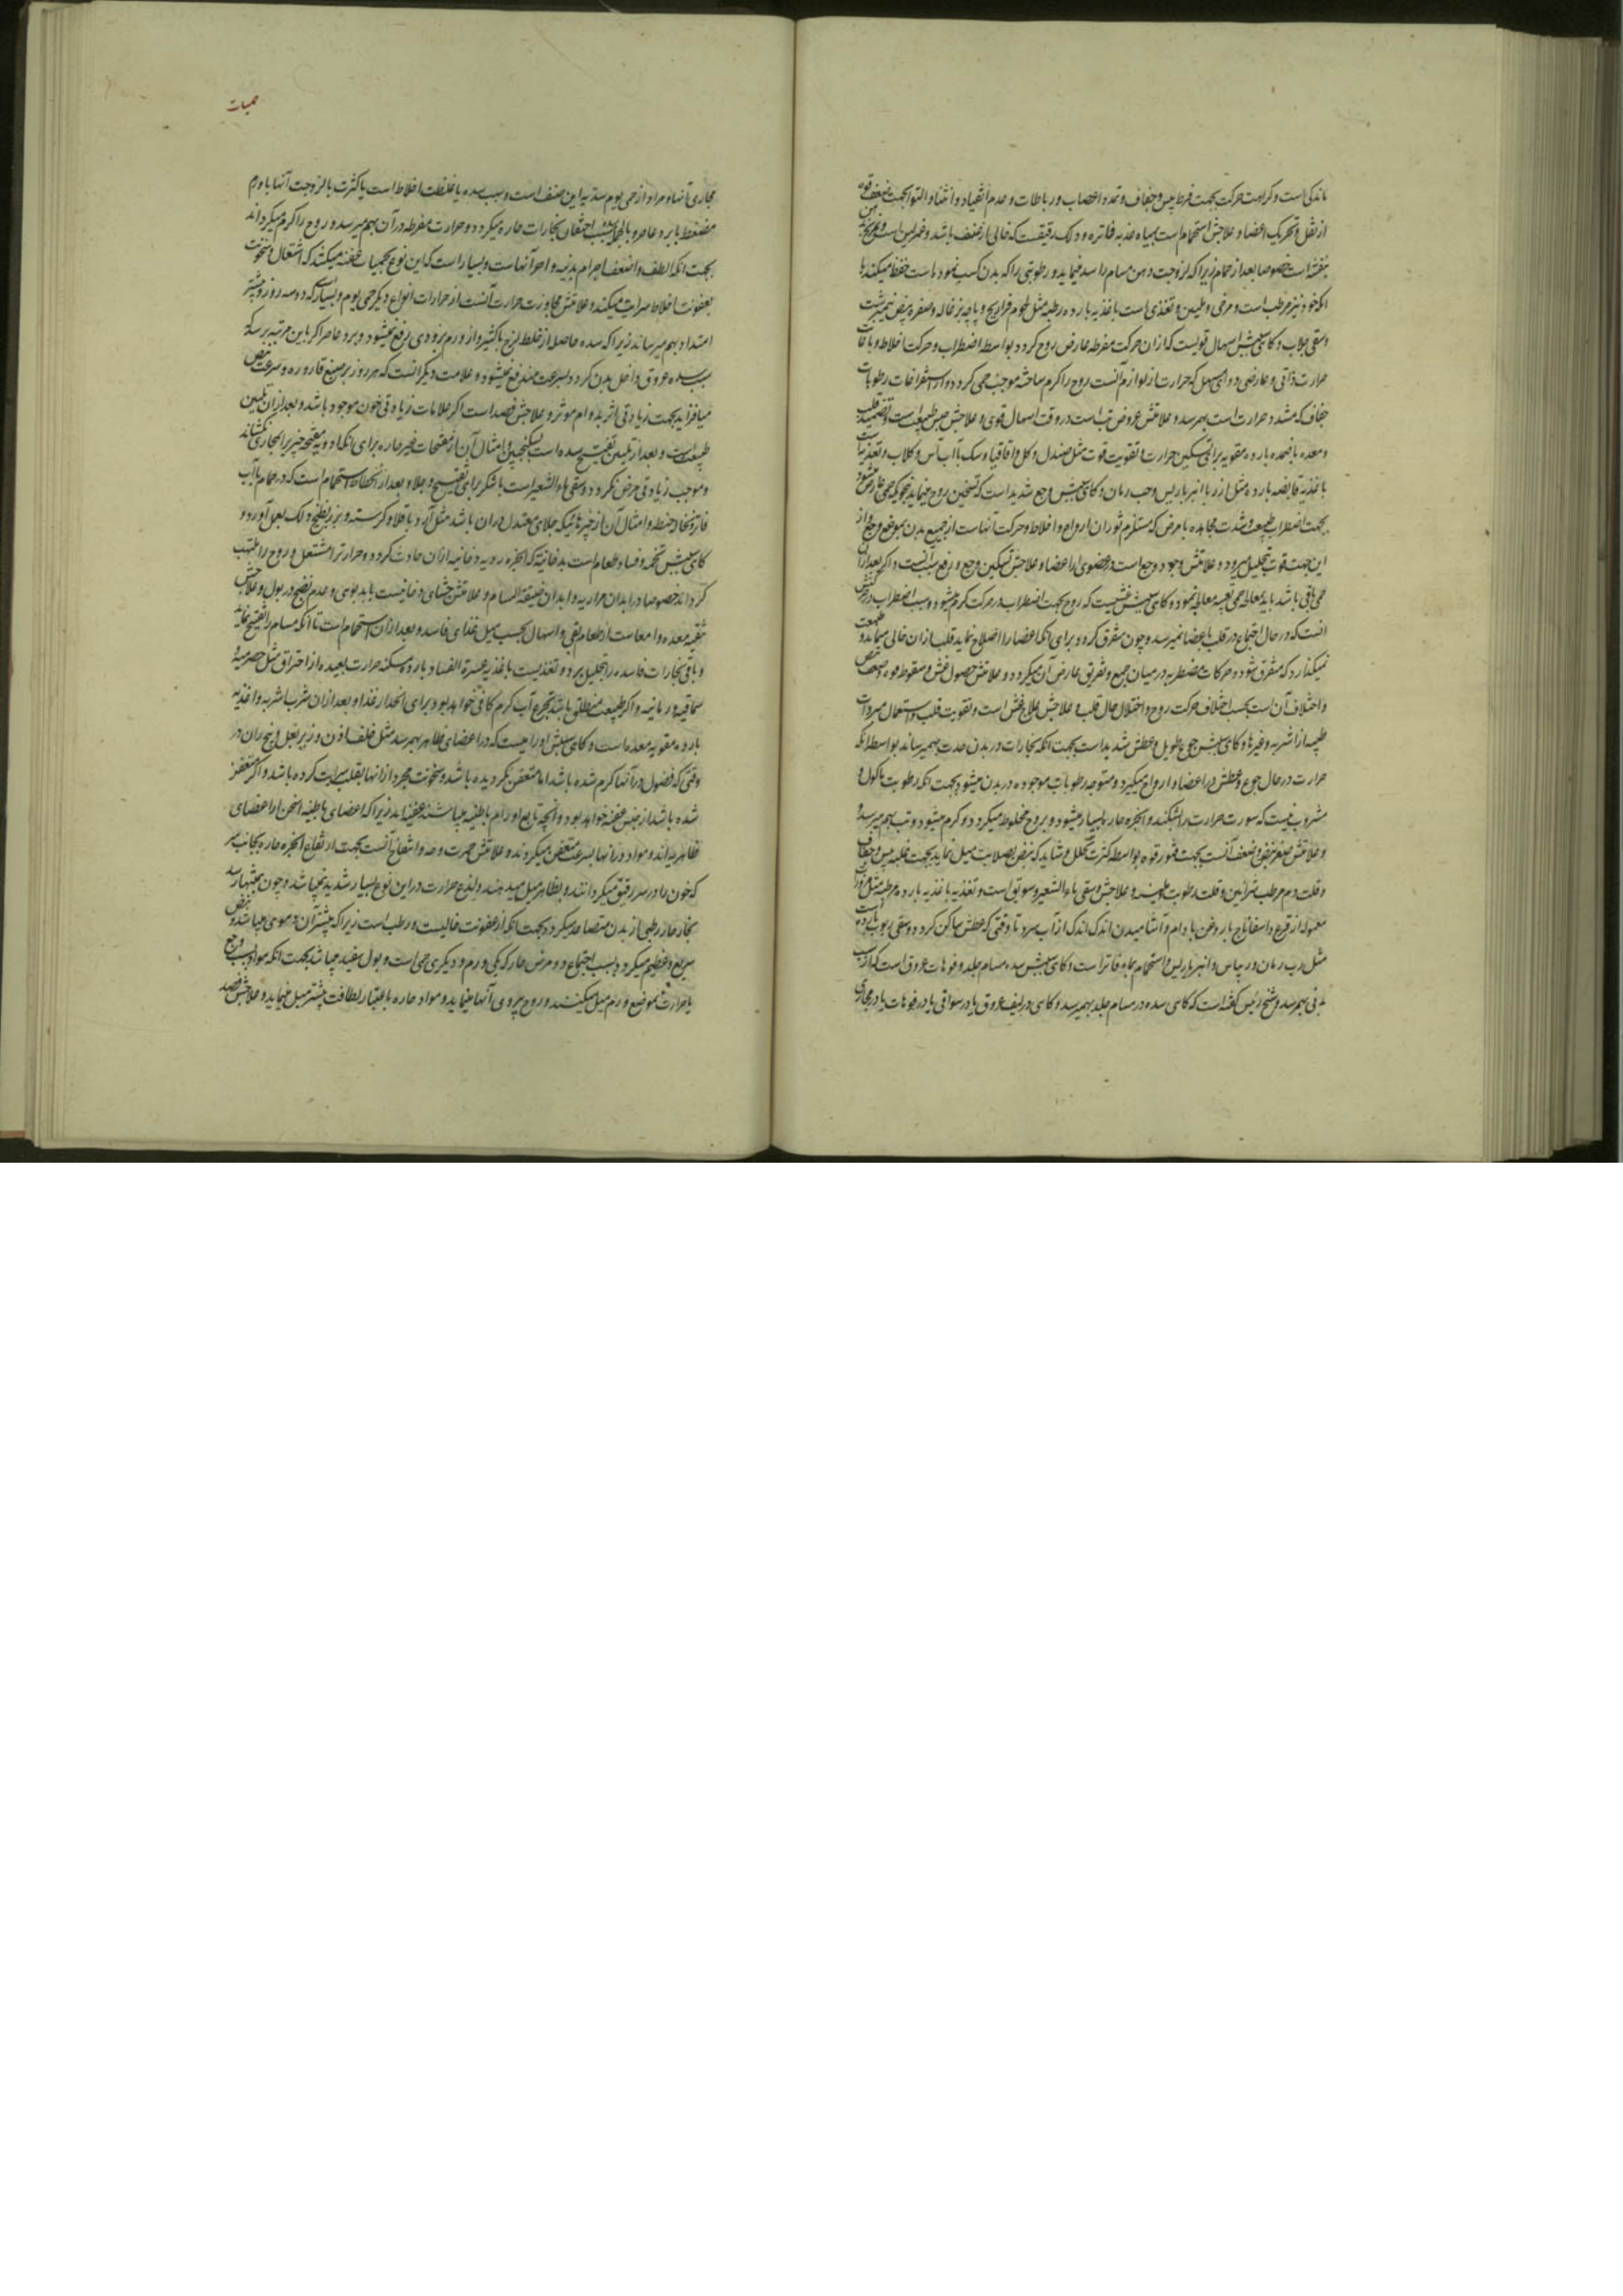 ماندکی است و کراهت حرکت بجهت فرط یبس و جفاف و تمدد اعصاب و رباطات و عدم انقیاد و انثناء و التواء بجهت ضعف قوه
از ثقل و تحریک اعضا و علاجش استحمام است بمیاه عذبه فاتره و دلک رقیق که خالی از عنف باشد و تمریخ
بنفشه است خصوصا بعد از حمام زیرا که لزوجت دهن مسام را سد مینماید و رطوبتی را که بدن کسب نموده است حفظ میکند با
انکه خود نیز مرطب است و مرخی و ملین و تغذی است باغذیه بارده رطبه مثل لحوم فراریج و پاچه بزغاله و صفره بیض نیمبرشت
و سقی جلاب و کاهی سببش اسهال قویست که از ان حرکت مفرطه عارض روح کردد بواسطه اضطراب و حرکت اخلاط و باعانت
حرارت ذاتی و عارضی دوای مسهل که حرارت از لوازم آنست روح را کرم ساخته موجب حمی کردد و از استفراغات رطوبات
جفاف که مشدد حرارت است بهم رسد و علامتش عروض تب است در وقت اسهال قوی و علاجش حبس طبیعت است و تضمید قلب
و معده باضمده بارده مقویه برای تسکین حرارت و تقویت قوت مثل صندل و کل و اقاقیا و سک با آب آس و کلاب و تغذیه است
باغذیه قابضه بارده مثل ارز با انبرباریس و حب رمان و کاهی سببش وجع شدید است که تسخین روح مینماید بنحویکه حمی عارض شود
بجهت اضطراب طبیعت و شدت مجاهده با مرض که مستلزم ثوران ارواح و اخلاط و حرکت آنهاست از جمیع بدن بموضع وجع و از
این جهت قوت بتحلیل میرود و علامتش وجود وجع است در عضوی از اعضا و علاجش تسکین وجع و رفع سبب آنست و اکر بعد از ان
حمی باقی باشد باید معالجه حمی تعبیه معالجه نمود و کاهی سببش غشیست که روح بجهت اضطراب در حرکت کرم میشود و سبب اضطراب در غشی
انست که در حال اجتماع در قلب باعضا نمیرسد و چون متفرق کردد برای انکه اعضا را اصلاح نماید قلب از ان خالی میماند و طبیعت
نمیکذارد که متفرق شود و حرکات مضطربه در میان جمع و تفریق عارض آن میکردد و علامتش حصول غشی و سقوط قوه و ضعف نبض
و اختلاف آن است بحسب اختلاف حرکت روح و اختلال حال قلب و علاجش علاج غشی است و تقویت قلب و استعمال مبردات
طیبه از اشربه و غیرها و کاهی سببش جوع طویل و عطش شدید است بجهت انکه بخارات در بدن حدت بهم میرساند بواسطه انکه
حرارت در حال جوع و عطش در اعضا و ارواح میکیرد و متوجه رطوبات موجوده در بدن میشود بجهت انکه رطوبت ماکول و
مشروب نیست که سورت حرارت را بشکند و ابخره حاره بسیار میشود و بروح مخلوط میکردد و کرم میشود و تب بهم میرسد
و علامتش صغر نبض و ضعف آنست بجهت فتور قوه بواسطه کثرت تحلل و شاید که نبض بصلابت میل نماید بجهت غلبه یبس و جفاف
و قلت دم مرطب شرائین و قلت رطوبت ملینه و علاجش سقی ماء الشعیر و سویق است و تغذیه باغذیه بارده مرطبه مثل مزوره
معموله از قرع و اسفاناخ با روغن بادام و آشامیدن اندک اندک از آب سرد تا وقتی که عطش ساکن کردد و سقی ربوب بارده است
مثل رب رمان و ریباس و انبرباریس و استحمام بماء فاتر است و کاهی سببش سده مسام جلد و فوهات عروق است که از سبب
بدنی بهم رسد و شیخ رئیس کفته است که کاهی سده در مسام جلد بهم میرسد و کاهی در لیف عروق یا در سواقی یا در فوهات یا در مجاری
حمیات
مجاری آنها و مراد از حمی یوم سدیه این صنف است و سبب سده یا غلظت اخلاط است یا کثرت یا لزوجت آنها یا ورم
مضغط یا برد عاصر و بالجمله سبب احتقان بخارات حاره میکردد و حرارت مفرطه در آن بهم میرسد و روح را کرم میکرداند
بجهت انکه الطف و اضعف اجرام بدنیه و احر آنهاست و بسیار است که این نوع بحمیات عفنه میکشد که اشتعال و سخونت
بعفونت اخلاط سرایت میکند و علامتش مجاوزت حرارت آنست از حرارات انواع دیکر حمی یوم و بسیار است که دو سه روز و بیشتر
امتداد بهم میرساند زیرا که سده حاصل از خلط لزج یا کثیر و از ورم بزودی رفع نمیشود و برد عاصر اکر باین مرتبه برسد که
سبب سده عروق داخل بدن کردد بسرعت مندفع نمیشود و علامت دیکر انست که هر روز بر صبغ قاروره و سرعت نبض
میافزاید بجهت زیادتی اثر بدوام موثر و علاجش فصد است اکر علامات زیادتی خون موجود باشد و بعد از ان تلیین
طبیعت است و بعد از تلیین تفتیح سده است بسکنجبین و امثال آن از مفتحات غیر حاره برای انکه ادویه مفتحه چیز بر مجاری کشاند
و موجب زیادتی مرض نکردد و سقی ماء الشعیر است با شکر برای تفتیح و جلا و بعد از انحطاط استحمام است که در حمام با آب
فاتر و نخاله حنطه و امثال آن از چیزهائیکه جلای معتدل در ان باشد مثل آرد باقلا و کرسنه و بزر بطیخ دلک بعمل آورد و
کاهی سببش تخمه و فساد طعام است بدخانیه که ابخره ردیه دخانیه ازان حادث کردد و حرارتر امشتعل و روح را ملتهب
کرداند خصوصا در ابدان مراریه و ابدان ضیقه المسام و علامتش جشای دخانیست یا بدبوی و عدم نضج در بول و علاجش
تنقیه معده و امعاست از طعام بقی و اسهال بحسب میل غذای فاسد و بعد از ان استحمام است تا آنکه مسام را تفتیح نماید
و باقی بخارات فاسده را بتحلیل برد و تغذیست باغذیه عسرة الفساد بارده مسکنه حرارت بعیده از احتراق مثل حصرمیه و
سماقیه و رمانیه و اکر طبیعت منطلق باشد تجرع آب کرم کافی خواهد بود برای انحدار غذا و بعد از ان شرب اشربه و اغذیه
بارده مقویه معده است و کاهی سببش اورامیست که در اعضای ظاهر بهم رسد مثل خلف اذن و زیر بغل و بیخ ران در
وقتی که فضول در آنها کرم شده باشد اما متعفن نکردیده باشد و سخونت مجرد از انها بقلب سرایت کرده باشد و اکر متعفن
شده باشد از جنس عفنه خواهد بود و انچه تابع اورام باطنیه میباشد عفنیه اند زیرا که اعضای باطنیه اسخن از اعضای
ظاهریه اند و مواد در انها بسرعت متعفن میکردند و علامتش حمرت وجه و انتفاخ آنست بجهت ارتفاع ابخره حاره بجانب سر
که خون را در سر رقیق میکردانند و بظاهر میل میدهند و لذع حرارت در این نوع بسیار شدید نمیباشد و چون بمنتها رسد
بخار حار رطبی از بدن متصاعد میکردد بجهت انکه از عفونت خالیست و رطب است زیرا که بیشتر آن دموی میباشد و نبض
سریع و عظیم میکردد بسبب اجتماع دو مرض حار که یکی ورم و دیکری حمی است و بول سفید میباشد بجهت انکه مواد بسبب وجع
یا حرارت بموضع ورم میل میکنند و روح پیروی آنها مینماید و مواد حاره باعتبار لطافت بیشتر میل مینماید و علاجش فصد